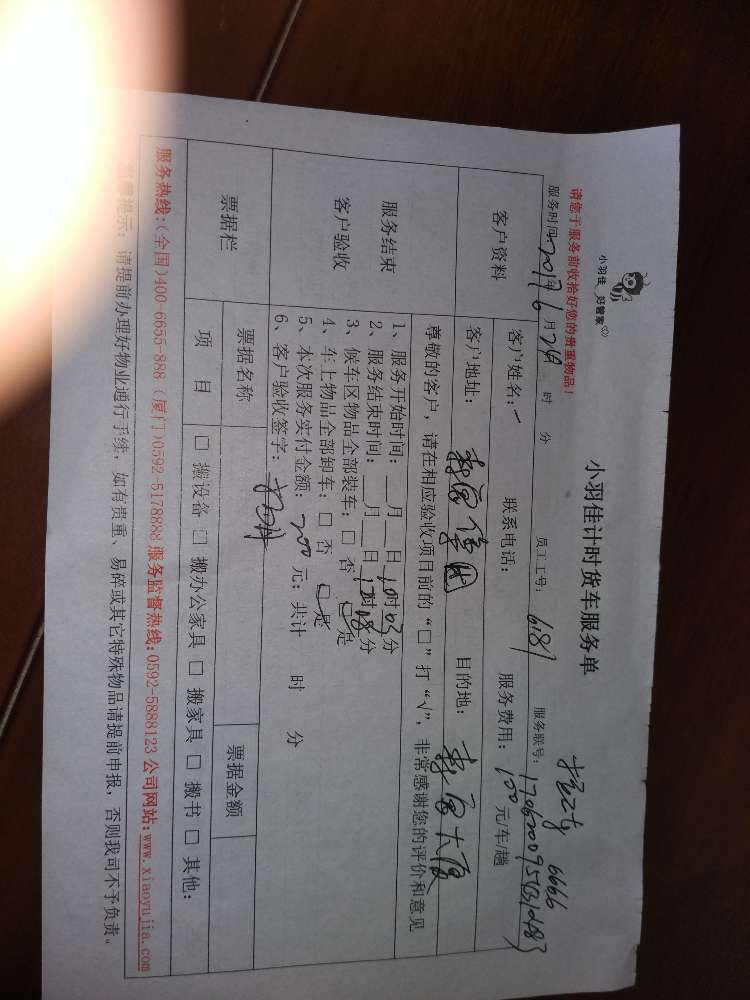 小羽佳 好管家
小羽佳计时货车服务单
6666
请您于服务前收拾好您的贵重物品！
服务时间: 2017年6月24日 时 分 员工工号: 6187 服务联号:
客户资料
客户姓名: 联系电话: 服务费用: 100元/车/趟
客户地址: 目的地:
服务结束
客户验收
尊敬的客户，请在相应验收项目前的“□”打“√”，非常感谢您的评价和意见
1、服务开始时间: __月__日10时03分
2、服务结束时间: __月__日12时08分
3、候车区物品全部装车: □ 否 □ 是
4、车上物品全部卸车: □ 否 □ 是
5、本次服务实付金额: 200元; 共计 时 分
6、客户验收签字:
票据栏
票据名称 票据金额
项 目 □ 搬设备 □ 搬办公家具 □ 搬家具 □ 搬书 □ 其他:
服务热线:(全国)400-6655-888 (厦门)0592-5178888 服务监督热线:0592-5888123 公司网站:www.xiaoyujia.com
温馨提示: 请提前办理好物业通行手续，如有贵重、易碎或其它特殊物品请提前申报，否则我司不予负责。